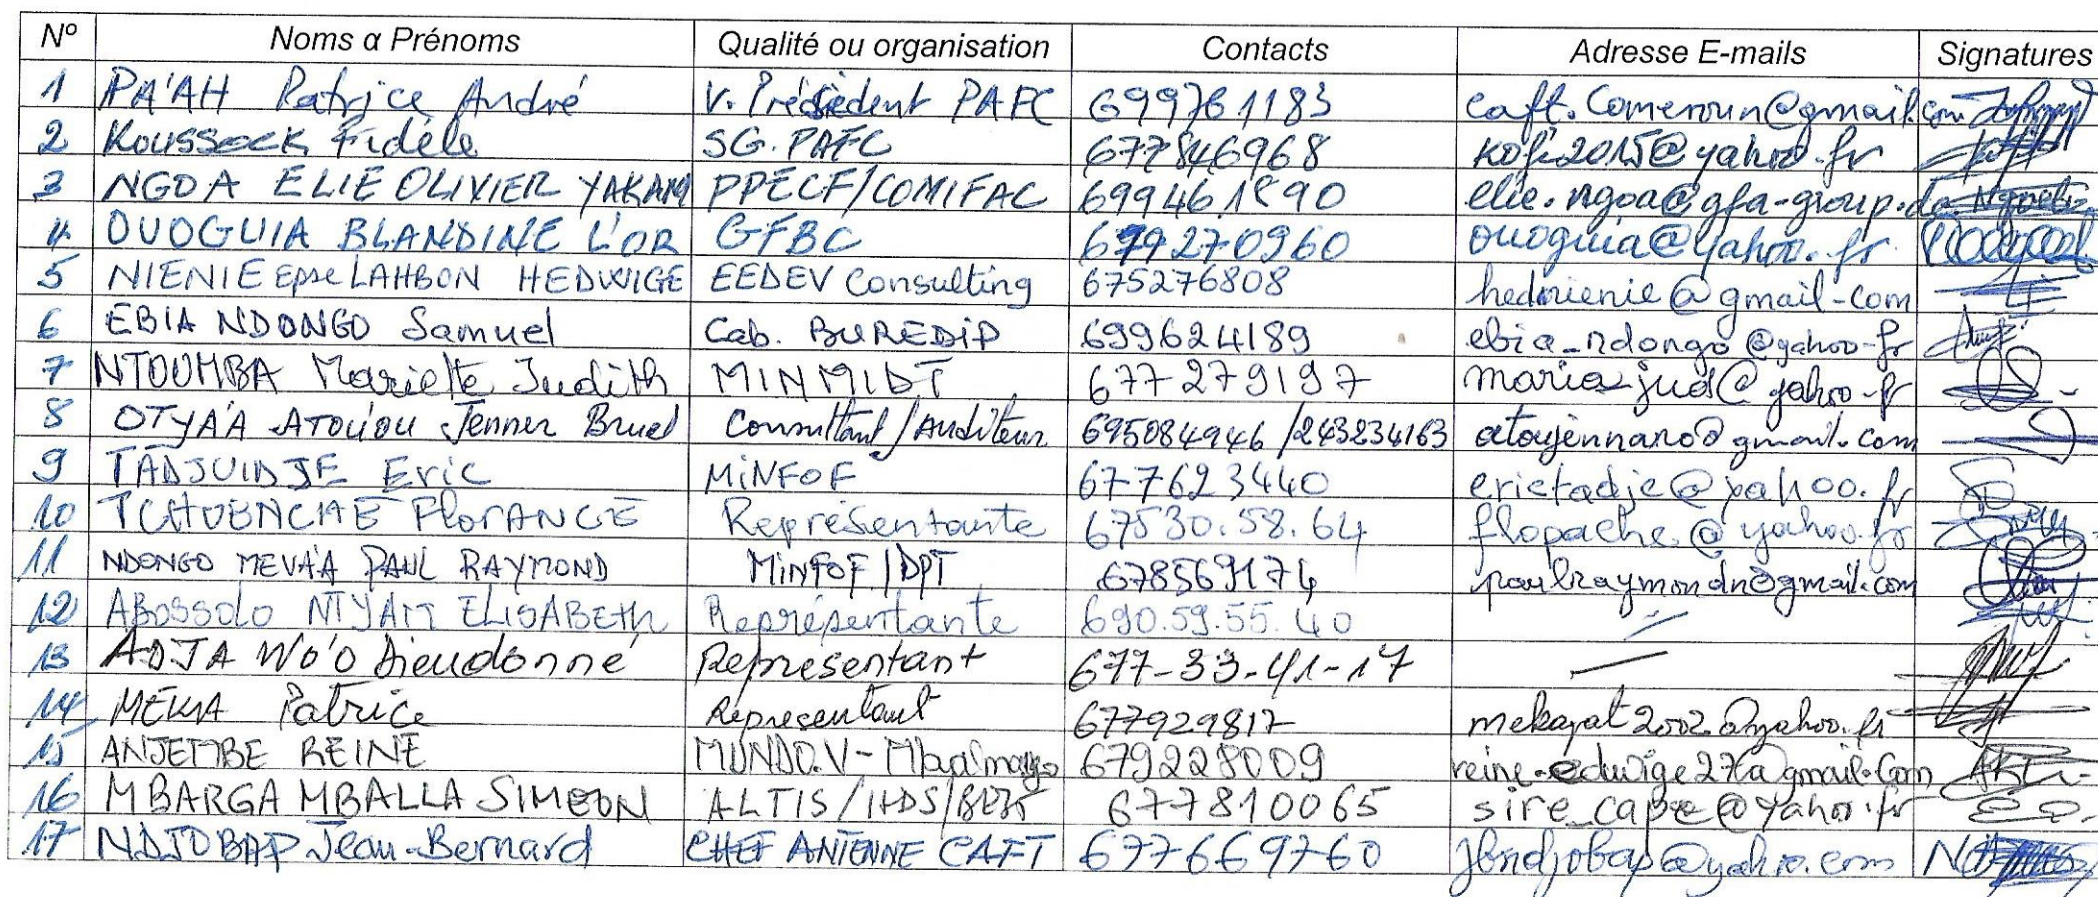 Nº Noms α Prénoms Qualité ou organisation Contacts Adresse E-mails Signatures
1 PA'AH Patrice André V. Président PAFC 699761183 caft.Cameroun@gmail.com
2 KOUSSOCK Fidèle SG. PAFC 677846968 kofi2015@yahoo.fr
3 NGOA ELIE OLIVIER YAKAM PPECF/COMIFAC 699461890 elie.ngoa@gfa-group.de
4 OUOGUIA BLANDINE L'OR GFBC 699270960 ouoguia@yahoo.fr
5 NIENIE Epse LAHBON HEDWIGE EEDEV Consulting 675276808 hednienie@gmail-com
6 EBIA NDONGO Samuel Cab. BUREDIP 699624189 ebia_ndongo@yahoo-fr
7 NTOUMBA Mariette Judith MINMIDT 677279197 mariajud@yahoo-fr
8 OTYA'A ATOUIOU Jenner Bruel Consultant/Auditeur 695084946 /243234163 atoyjennaro@gmail.com
9 TADJUIDJE Eric MiNFOF 677623440 erictadje@yahoo.fr
10 TCHUENCHAE FlorANCE Représentante 67530.58.64 flopache@yahoo.fr
11 NDONGO MEVA'A PAUL RAYMOND MiNFOF/DPT 678569174 paulraymondn@gmail.com
12 ABOSSOLO NTYAM ELISABETH Représentante 690.59.55.40
13 ADJA WO'O Dieudonné Représentant 677-33-41-17
14 MEKA Patrice Représentant 677929817 mekapat2002@yahoo.fr
15 ANJEMBE REINE MUNDO.V-Mbalmayo 679228009 reine.edwige27@gmail.com
16 MBARGA MBALLA SIMEON ALTIS/IHDS/ 677810065 sire_cape@yahoo.fr
17 NDJOBAP Jean-Bernard CHEF ANTENNE CAFT 677669760 jbndjobap@yahoo.com